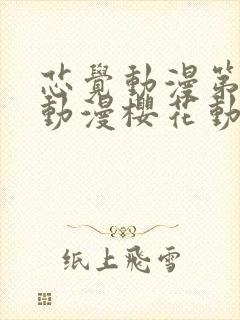 芯觉動漫第
動漫櫻花動
纸上飛雪